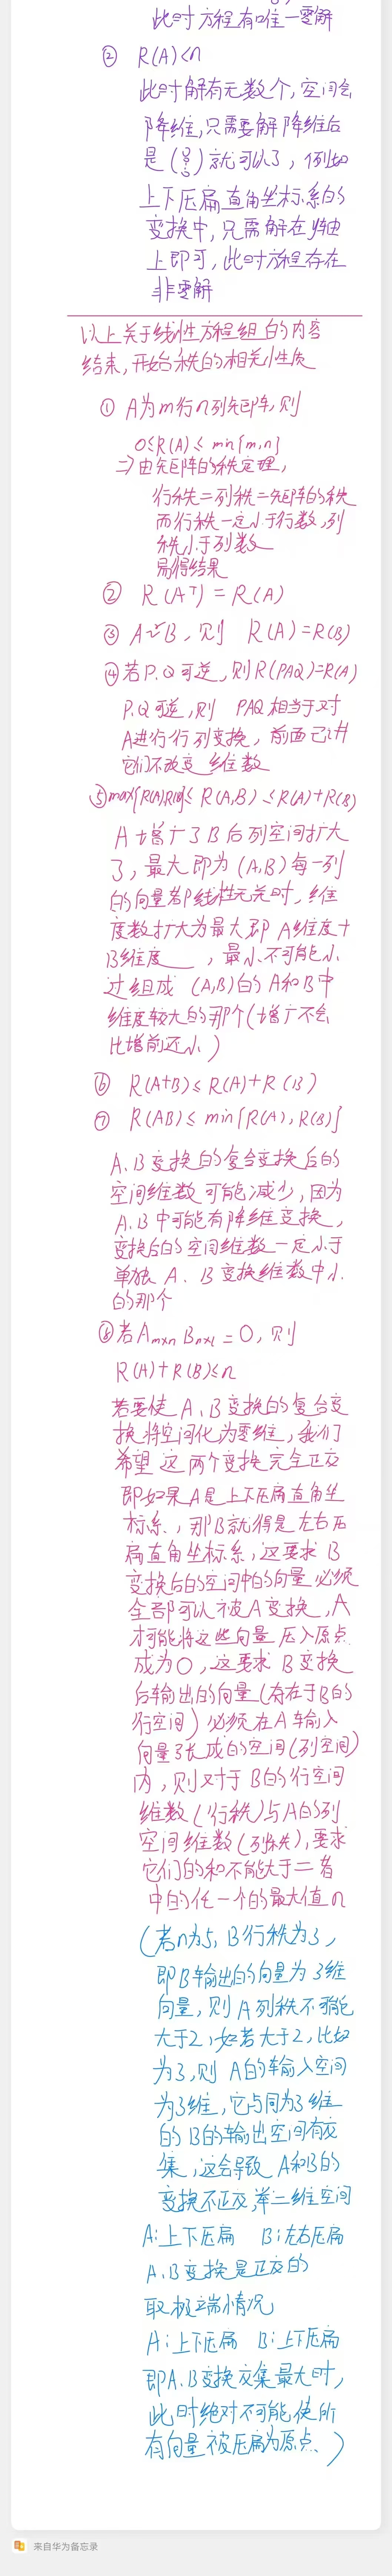 此时方程有唯一零解
② R(A)<n
此时解有无数个,空间会
降维,只需要解降维后
是(0 0 0)就可以了,例如
上下压扁直角坐标系的
变换中,只需解在y轴
上即可,此时方程存在
非零解
以上关于线性方程组的内容
结束,开始秩的相关性质
① A为m行n列矩阵,则
0≤R(A)≤ min{m,n}
⇒由矩阵的秩定理,
行秩=列秩=矩阵的秩
而行秩一定小于行数,列
秩小于列数
易得结果
② R(Aᵀ)=R(A)
③ A~B,则 R(A)=R(B)
④若P.Q可逆,则R(PAQ)=R(A)
P.Q可逆,则 PAQ相当于对
A进行行列变换,前面已讲
它们不改变维数
⑤max{R(A),R(B)}≤ R(A,B) ≤R(A)+R(B)
A增广了B后列空间扩大
了,最大即为(A,B)每一列
的向量都线性无关时,维
度数扩大为最大即A维度+
B维度,最小不可能小
过组成(A,B)的A和B中
维度较大的那个(增广不会
比增前还小)
⑥ R(A+B)≤R(A)+R(B)
⑦ R(AB)≤ min{R(A),R(B)}
A、B变换的复合变换后的
空间维数可能减少,因为
A.B中可能有降维变换,
变换后的空间维数一定小于
单独A、B变换维数中小
的那个
⑧若Aₘₓₙ Bₙₓₗ =0,则
R(A)+R(B)≤n
若要使A、B变换的复合变
换将空间化为零维,我们
希望这两个变换完全正交
即如果A是上下压扁直角坐
标系,那B就得是左右压
扁直角坐标系,这要求B
变换后的空间中的向量必须
全部可以被A变换,A
才可能将这些向量压入原点
成为0,这要求B变换
后输出的向量(存在于B的
行空间)必须在A输入
向量张成的空间(列空间)
内,则对于B的行空间
维数(行秩)与A的列
空间维数(列秩),要求
它们的和不能大于二者
中的任一个的最大值n
(若n为5,B行秩为3,
即B输出的向量为3维
向量,则A列秩不可能
大于2,如若大于2,比如
为3,则A的输入空间
为3维,它与同为3维
的B的输出空间有交
集,这会导致A和B的
变换不正交,举二维空间
A:上下压扁 B:左右压扁
A、B变换是正交的
取极端情况
A:上下压扁 B:上下压扁
即A.B变换交集最大时,
此时绝对不可能使所
有向量被压扁为原点、)
来自华为备忘录